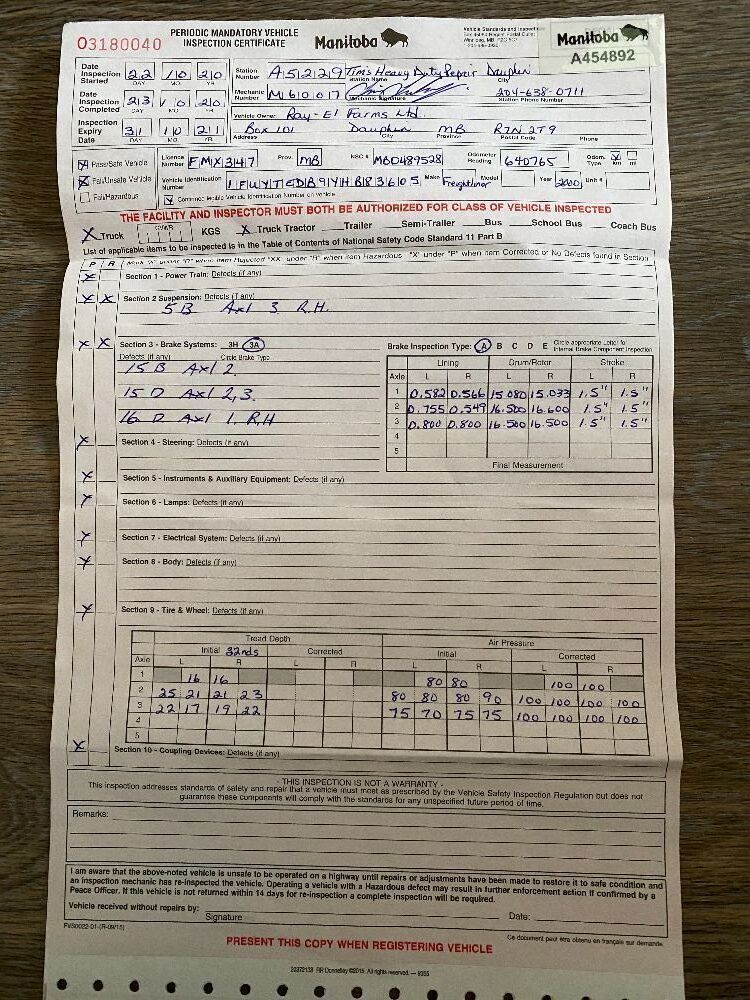 03180040
PERIODIC MANDATORY VEHICLE
INSPECTION CERTIFICATE
Manitoba
Manitoba
A454892
Date Inspection Started 22 DAY 10 MO. 20 YR.
Station Number A5229 Tim's Heavy Duty Repair Dauphin
Station Name City
Date Inspection Completed 23 DAY 10 MO. 20 YR.
Mechanic Number M60017 Mechanic Signature 204-638-0711
Station Phone Number
Inspection Expiry Date 31 DAY 10 MO. 21 YR.
Vehicle Owner Ray-El Farms Ltd.
Box 101 Dauphin MB R7N 2T9
Address City Province Postal Code Phone
X Pass/Safe Vehicle
Licence Number FMX347 Prov. MB NSC # MBD489528 Odometer Reading 640765 Odom. Type X km mi
X Fail/Unsafe Vehicle
Vehicle Identification Number 1FUYTEDB9YHB83605 Make Freightliner Model Year 2000 Unit #
Fail/Hazardous
Confirmed legible Vehicle Identification Number on vehicle
THE FACILITY AND INSPECTOR MUST BOTH BE AUTHORIZED FOR CLASS OF VEHICLE INSPECTED
X Truck GVWR KGS X Truck Tractor Trailer Semi-Trailer Bus School Bus Coach Bus
List of applicable items to be inspected is in the Table of Contents of National Safety Code Standard 11 Part B
P R Mark "X" under "R" when item Rejected "XX" under "R" when item Hazardous "X" under "P" when item Corrected or No Defects found in Section
X Section 1 - Power Train: Defects (if any)
X X Section 2 Suspension: Defects (if any)
5B Axl 3 R.H.
X X Section 3 - Brake Systems: 3H 3A
Brake Inspection Type: A B C D E Circle appropriate Letter for
Internal Brake Component Inspection
Defects (if any) Circle Brake Type
15 B Axl 2
15 D Axl 2,3.
16 D Axl 1. R.H
Lining Drum/Rotor Stroke
Axle L R L R L R
1 0.582 0.566 15.080 15.033 1.5" 1.5"
2 0.755 0.549 16.500 16.600 1.5" 1.5"
3 0.800 0.800 16.500 16.500 1.5" 1.5"
4
5
Final Measurement
X Section 4 - Steering: Defects (if any)
X Section 5 - Instruments & Auxiliary Equipment: Defects (if any)
X Section 6 - Lamps: Defects (if any)
X Section 7 - Electrical System: Defects (if any)
X Section 8 - Body: Defects (if any)
X Section 9 - Tire & Wheel: Defects (if any)
Tread Depth Air Pressure
Initial 32nds Corrected Initial Corrected
Axle L R L R L R L R
1 16 16 80 80 100 100
2 25 21 21 23 80 80 80 90 100 100 100 100
3 22 17 19 22 75 70 75 75 100 100 100 100
4
5
X Section 10 - Coupling Devices: Defects (if any)
- THIS INSPECTION IS NOT A WARRANTY -
This inspection addresses standards of safety and repair that a vehicle must meet as prescribed by the Vehicle Safety Inspection Regulation but does not
guarantee these components will comply with the standards for any unspecified future period of time.
Remarks:
I am aware that the above-noted vehicle is unsafe to be operated on a highway until repairs or adjustments have been made to restore it to safe condition and
an inspection mechanic has re-inspected the vehicle. Operating a vehicle with a Hazardous defect may result in further enforcement action if confirmed by a
Peace Officer. If this vehicle is not returned within 14 days for re-inspection a complete inspection will be required.
Vehicle received without repairs by:
Signature Date:
FVS0022-01-(R-09/15)
Ce document peut être obtenu en français sur demande.
PRESENT THIS COPY WHEN REGISTERING VEHICLE
20372138 RR Donnelley ©2015. All rights reserved. — 9355